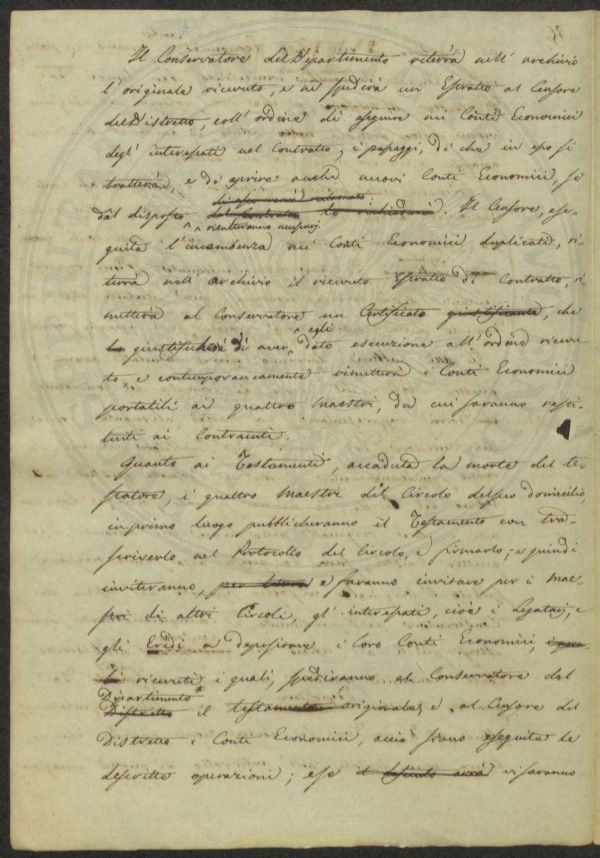 Il Conservatore del Dipartimento riterrà nell' archivio
l'originale ricevuto, e ne spedirà un Estratto al Censore
del Distretto, coll' ordine di eseguire nei Conti Economici
degl' interessati nel Contratto, i passaggi, di che in esso si
tratterà, e di aprire anche nuovi Conti Economici, se
dal disposto del Contratto lo richiedesse. Il Censore, ese-
risulteranno necessarj
guita l'incombenza nei Conti Economici duplicati, ri-
terrà nell' archivio il ricevuto estratto di Contratto, ri-
metterà al Conservatore un Certificato giustificante, che
lo giustifichi di aver egli dato esecuzione all' ordine ricevu-
to, e contemporaneamente rimetterà i Conti Economici
portatili ai quattro Maestri, da cui saranno resti-
tuiti ai Contraenti.
Quanto ai Testamenti, accaduta la morte del te-
statore, i quattro Maestri del Circolo del suo domicilio,
in primo luogo pubblicheranno il Testamento con tra-
scriverlo nel Protocollo del Circolo, e firmarlo; e quindi
inviteranno, e faranno invitare per i Mae-
stri di altri Circoli, gl' interessati, cioè i Legatarj, e
gli Eredi a depositare i loro Conti Economici,
ricevuti i quali, spediranno al Conservatore del
Dipartimento
Distretto il testamento originale, e al Censore del
Distretto i Conti Economici, acciò siano eseguite le
descritte operazioni; e se vi saranno